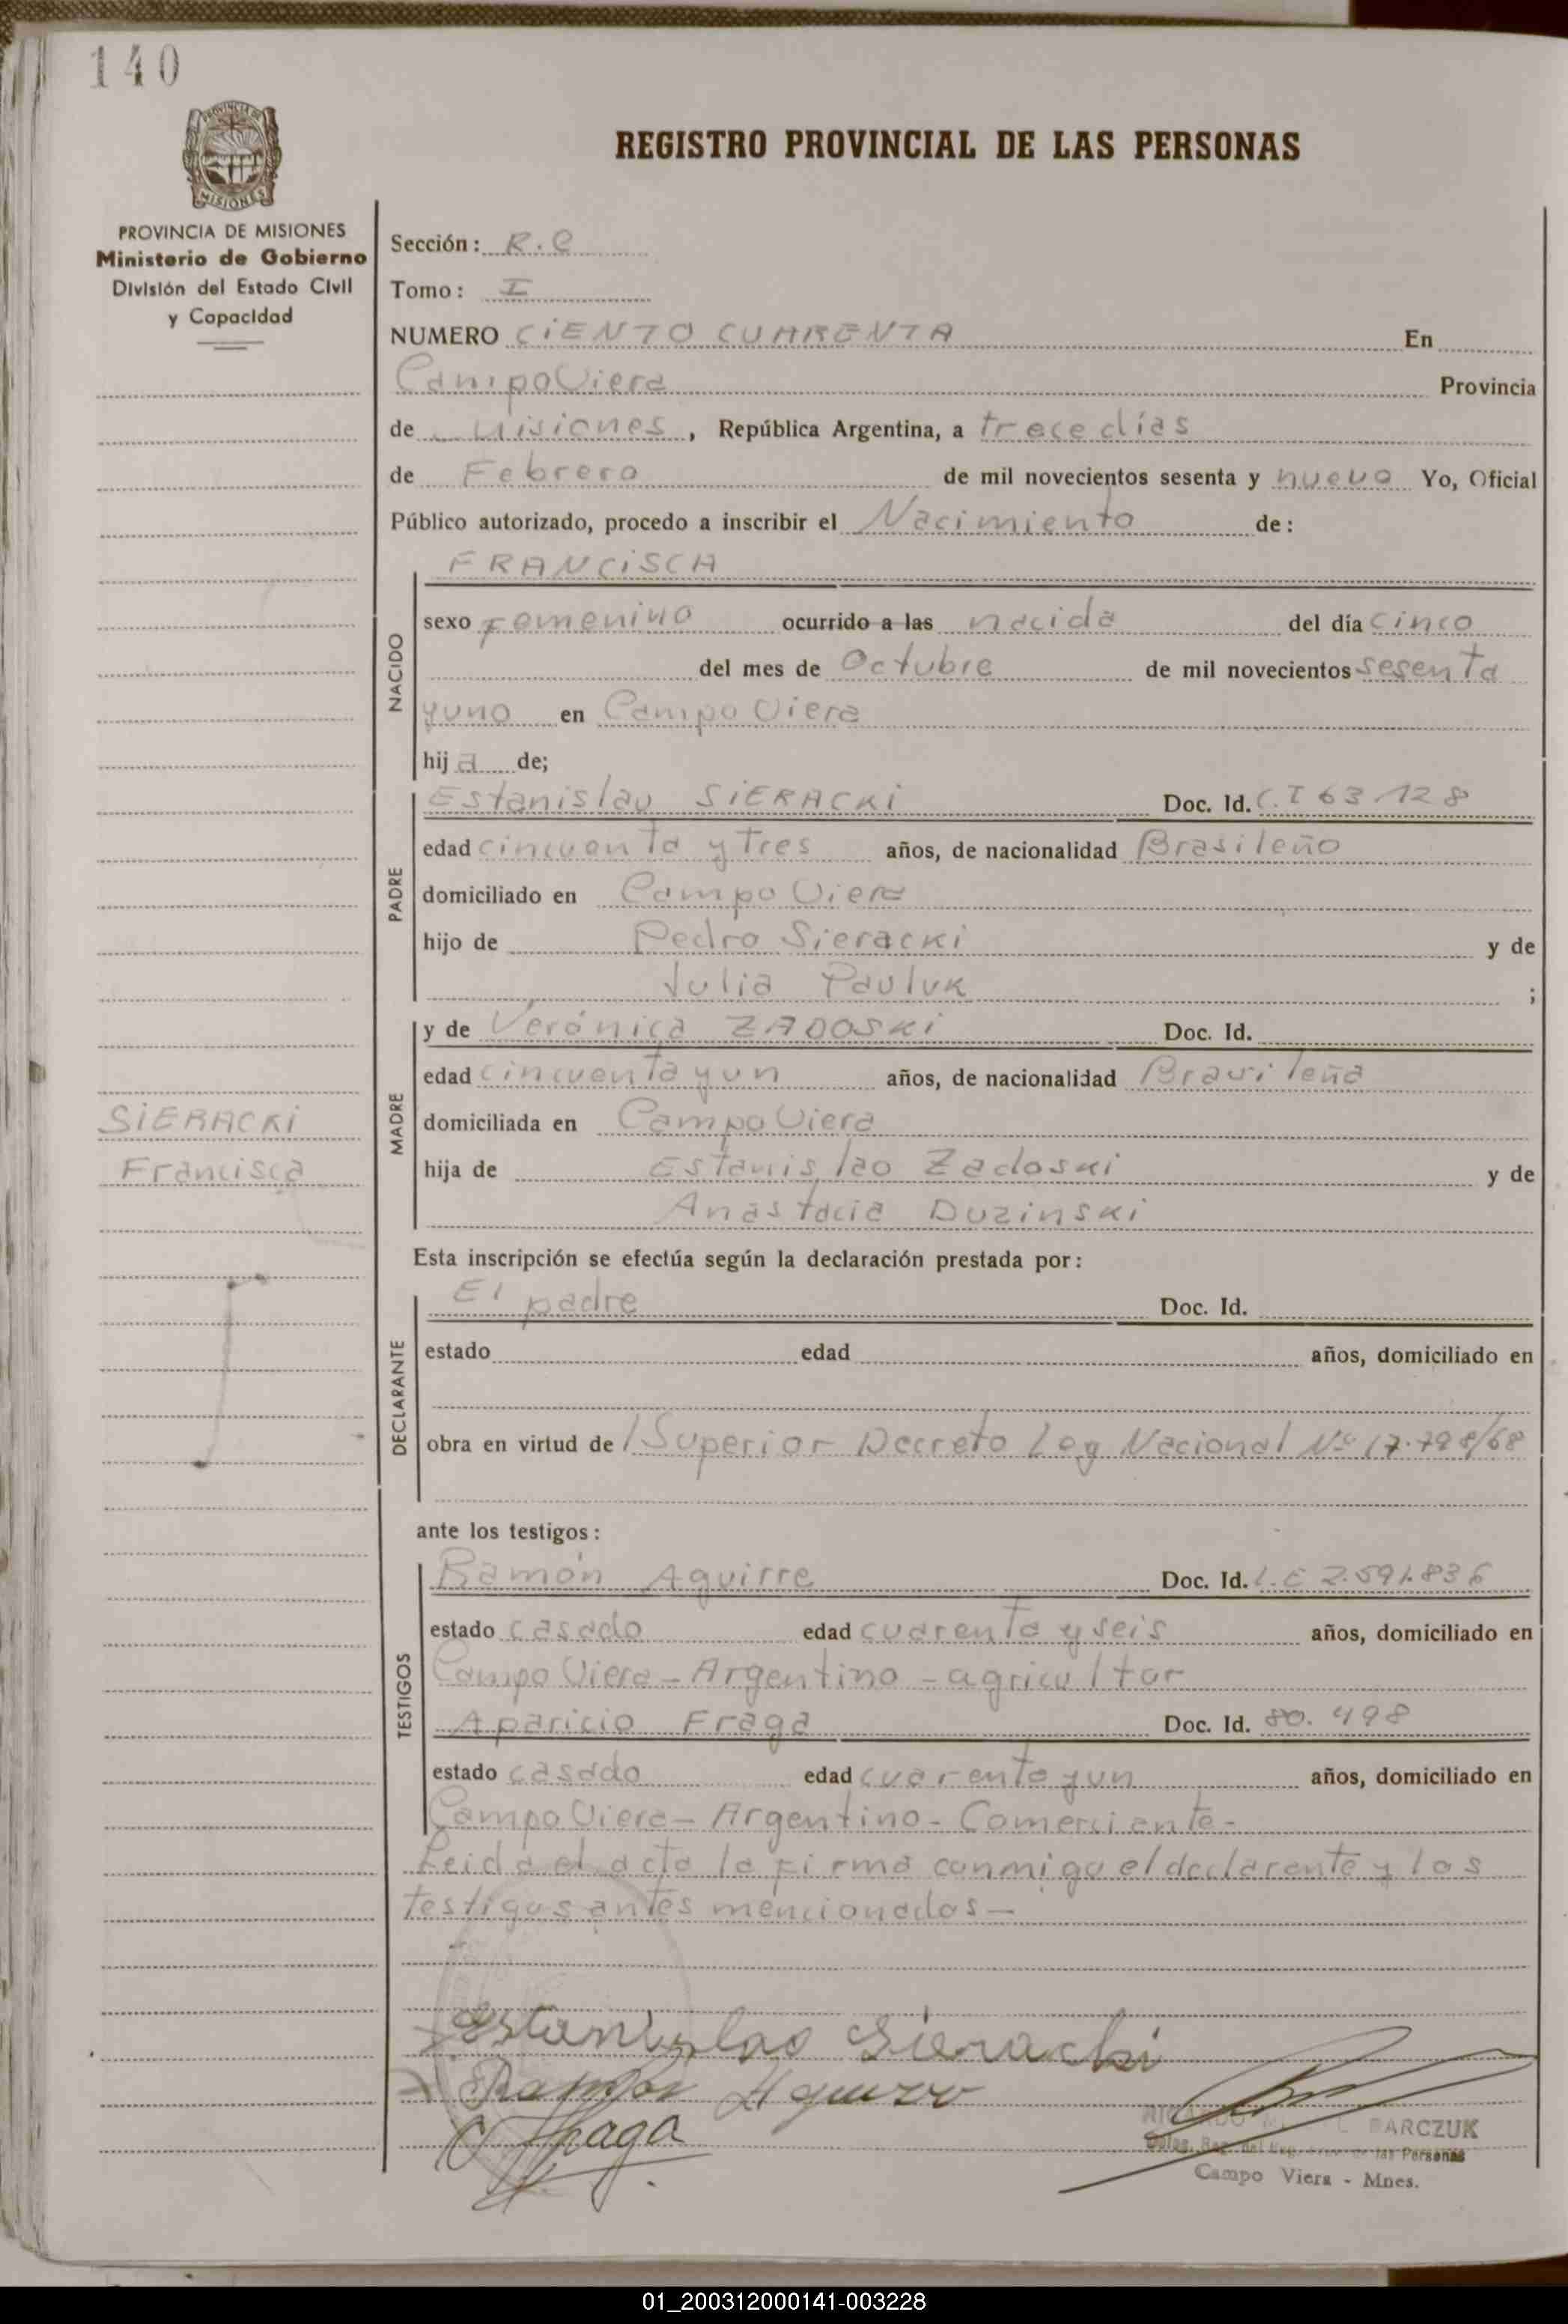 140
PROVINCIA DE MISIONES
Ministerio de Gobierno
División del Estado Civil
y Capacidad
REGISTRO PROVINCIAL DE LAS PERSONAS
Sección: R.C
Tomo: I
NUMERO CIENTO CUARENTA En
Campo Viera Provincia
de Misiones, República Argentina, a trece días
de Febrero de mil novecientos sesenta y nueve Yo, Oficial
Público autorizado, procedo a inscribir el Nacimiento de:
FRANCISCA
NACIDO
sexo Femenino ocurrido a las nacida del día cinco
del mes de Octubre de mil novecientos sesenta
y uno en Campo Viera
hija de;
PADRE
Estanislau SIERACKI Doc. Id. C.I 63.128
edad cincuenta y tres años, de nacionalidad Brasileño
domiciliado en Campo Viera
hijo de Pedro Sieracki y de
Julia Pauluk ;
MADRE
y de Verónica ZADOSKI Doc. Id.
edad cincuenta y un años, de nacionalidad Brasileña
domiciliada en Campo Viera
hija de Estanislao Zadoski y de
Anastacia Duzinski
SIERACKI
Francisca
Esta inscripción se efectúa según la declaración prestada por:
DECLARANTE
El padre Doc. Id.
estado edad años, domiciliado en
obra en virtud de /Superior Decreto Ley Nacional Nº 17.798/68
ante los testigos:
TESTIGOS
Ramón Aguirre Doc. Id. L.E 2.591.836
estado casado edad cuarenta y seis años, domiciliado en
Campo Viera - Argentino - agricultor
Aparicio Fraga Doc. Id. 80.498
estado casado edad cuarenta y un años, domiciliado en
Campo Viera - Argentino - Comerciante -
Leida el acta la firma conmigo el declarante y los
testigos antes mencionados -
Estanislao Sieracki
Ramón
Fraga
BARCZUK
de las Personas
Campo Viera - Mnes.
01_200312000141-003228